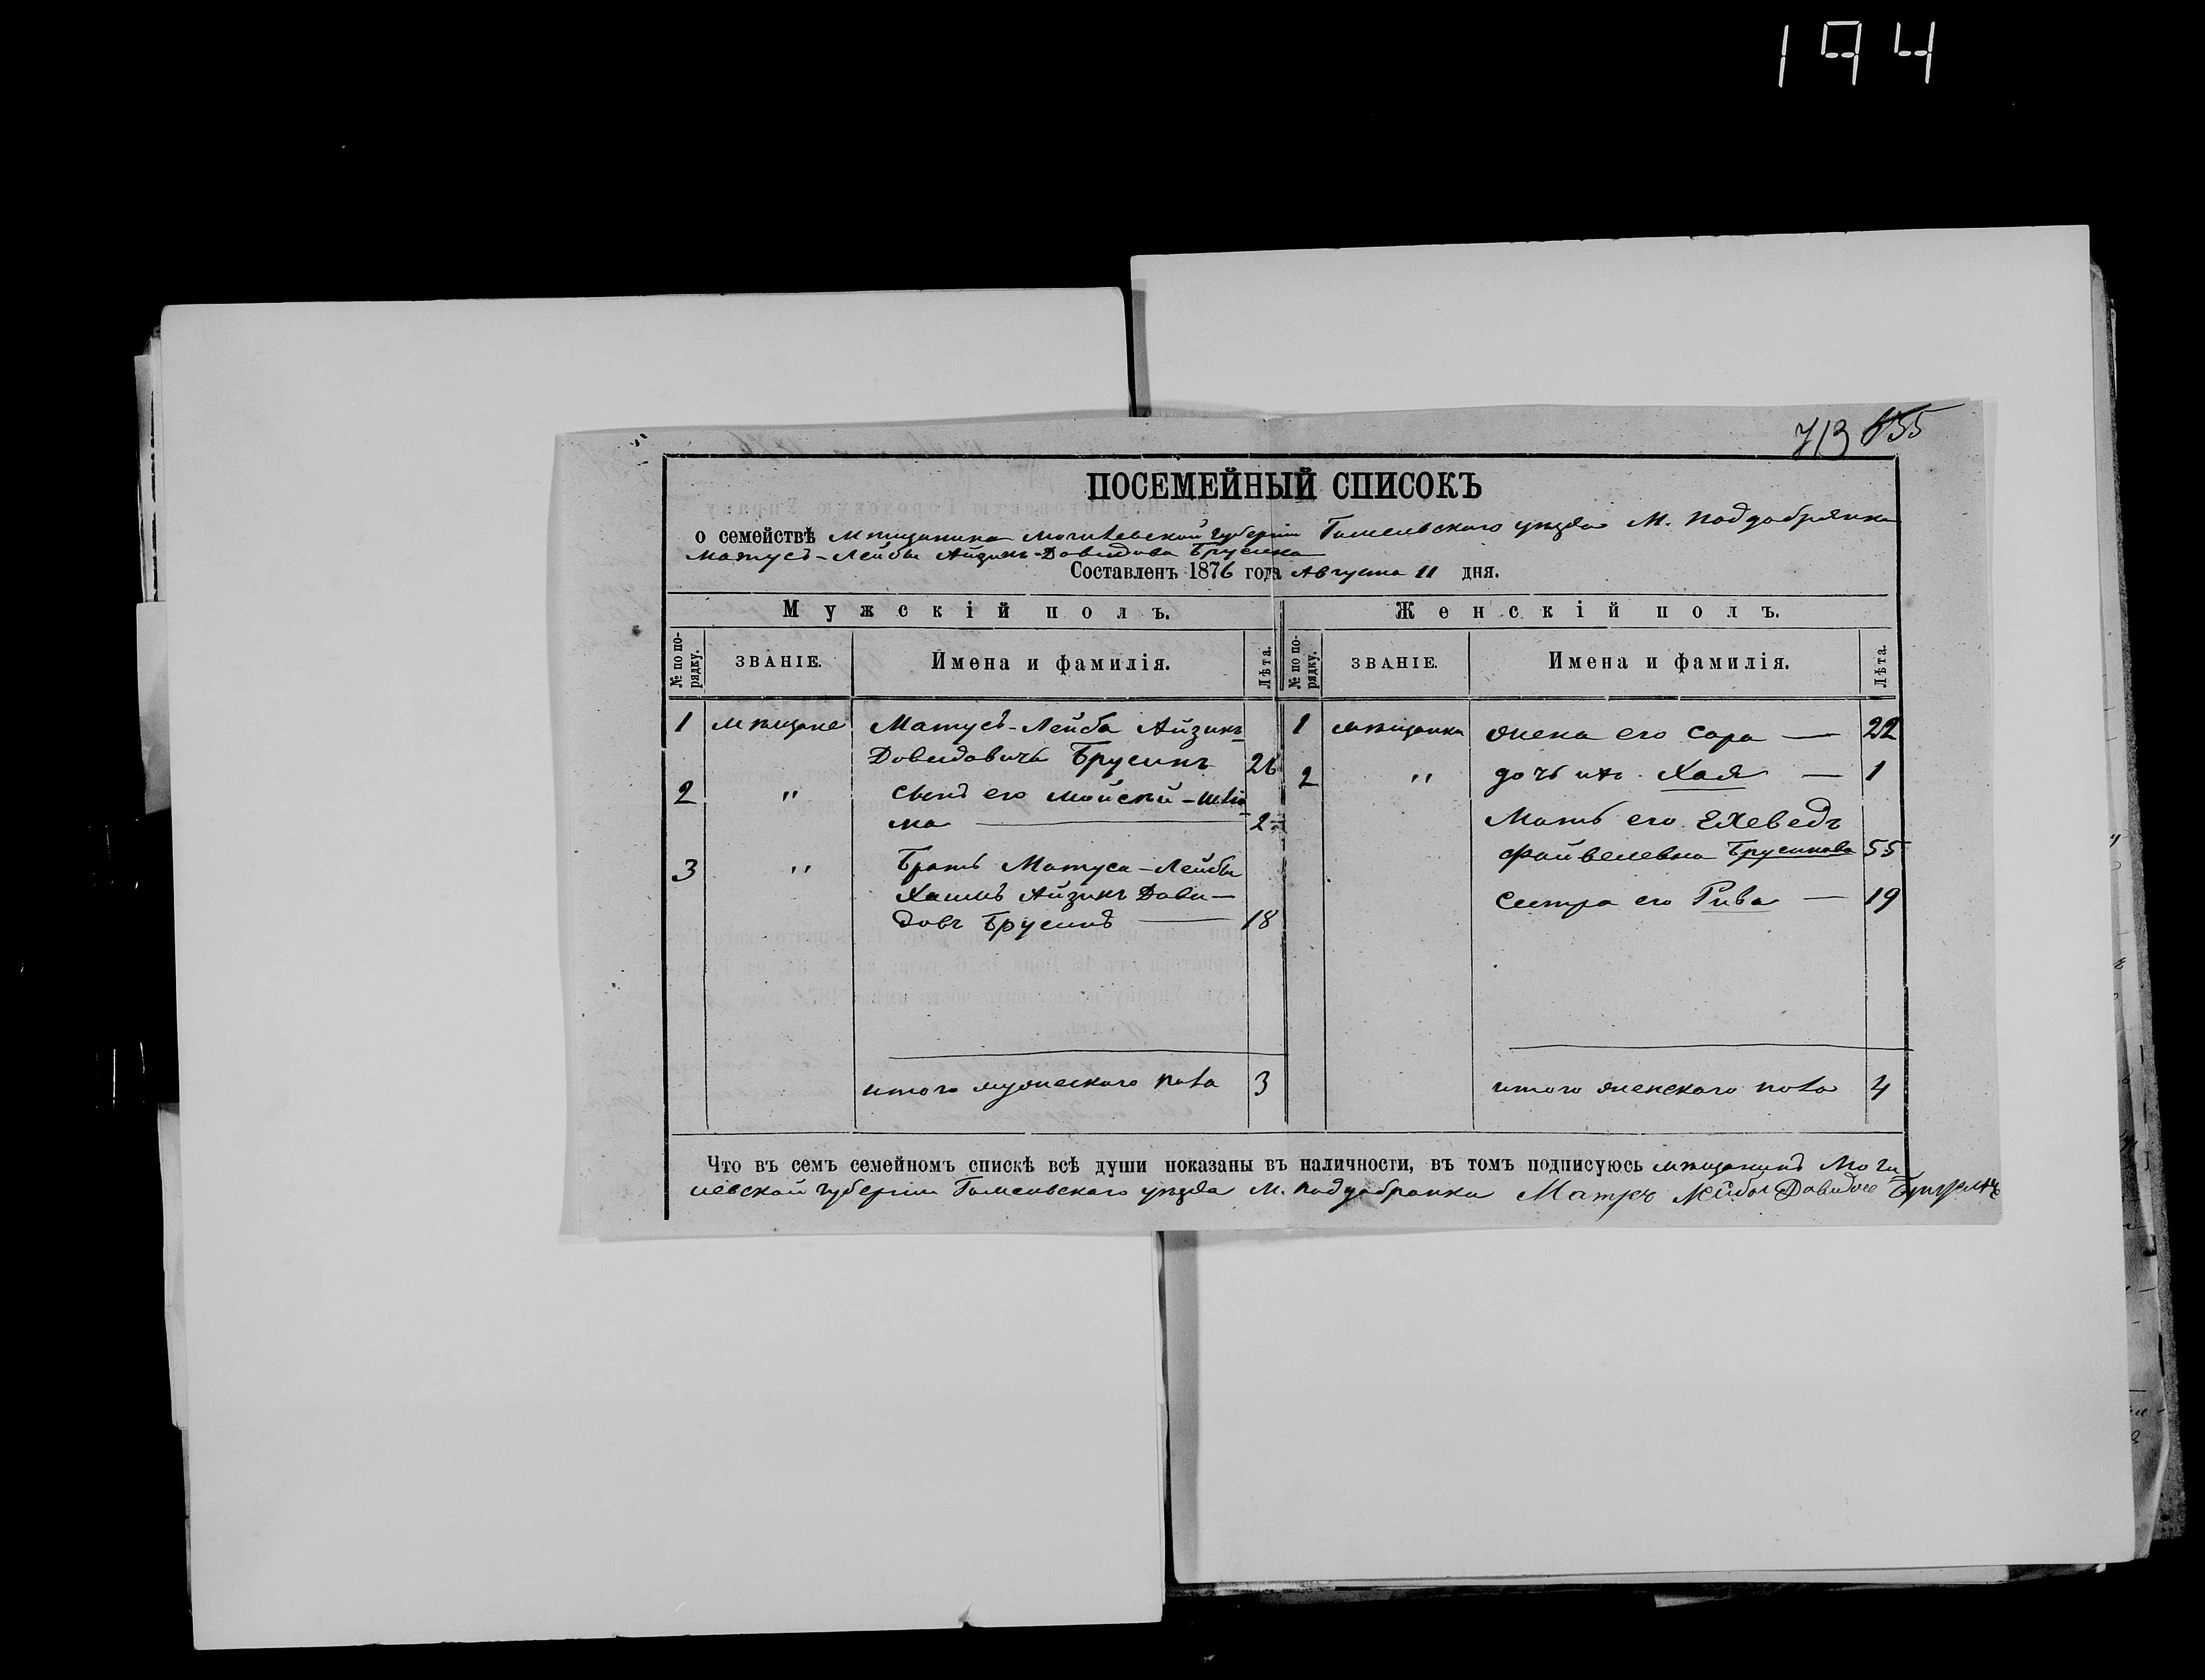 194
713 855
ПОСЕМЕЙНЫЙ СПИСОКЪ
о семействѣ мѣщанина Могилевской губерніи Гомельскаго уѣзда М. Поддобрянки
Матусъ-Лейбы Айзикъ-Довидова Брусина
Составленъ 1876 года Августа 11 дня.
Мужскій полъ. Женскій полъ.
№ по порядку. ЗВАНІЕ. Имена и фамилія. Лѣта. № по порядку. ЗВАНІЕ. Имена и фамилія. Лѣта.
1 мѣщане Матусъ-Лейба Айзикъ
Довидовичъ Брусинъ 26
2 " сынъ его
ма — 2
3 " Братъ Матуса-Лейбы
Хаимъ Айзикъ Дави-
довъ Брусинъ — 18
итого мужескаго пола 3
1 мѣщанка жена его Сора — 22
2 " дочь ихъ Хая — 1
Мать его Ехеведъ
Файвелевна Брусинова 55
Сестра его Рива — 19
итого женскаго пола 4
Что въ семъ семейномъ спискѣ всѣ души показаны въ наличности, въ томъ подписуюсь мѣщанинъ Моги-
левской губерніи Гомельскаго уѣзда М. Поддобранки